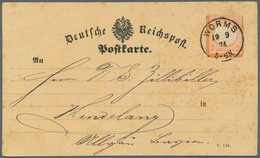 Deutsche Reichspost.
Postkarte.
WORMS
19 9
74
An
Herrn
in
Hindelang
Allgäu Bayern
C. 154.